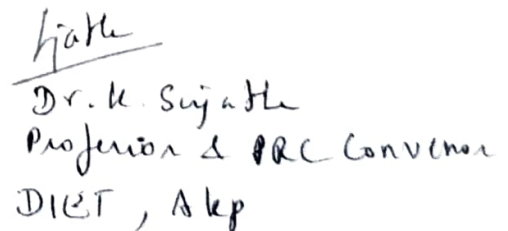 Dr. K. Sujatha
Professor & PRC Convenor
DIET, Akp